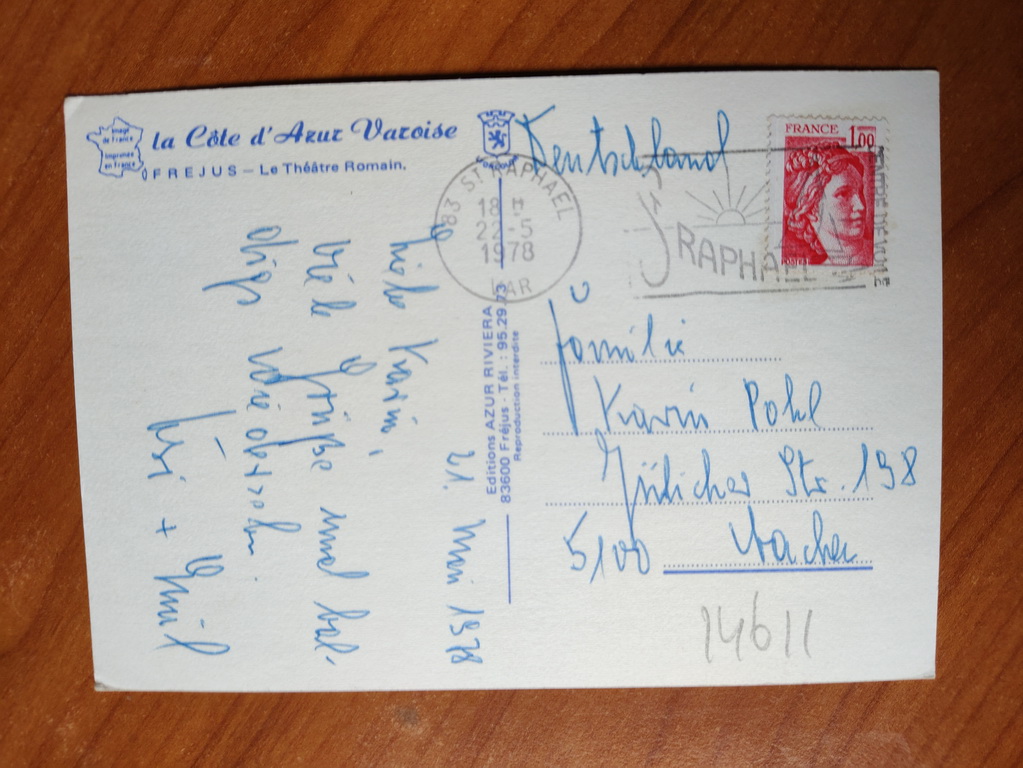 la Côte d'Azur Varoise
FREJUS – Le Théâtre Romain.
imagé
de France
imprimée
en France
21. Mai 1978
Karin,
viele Grüße und bal-
diges
+ Emil
Editions AZUR RIVIERA
83600 Fréjus - Tél. : 95.29.73
Reproduction interdite
Deutschland
83 ST RAPHAEL
18 H
22 -5
1978
VAR
ST RAPHAEL
FRANCE 1,00
Familie
Karin Pohl
Jülicher Str. 198
5100 Aachen
14611